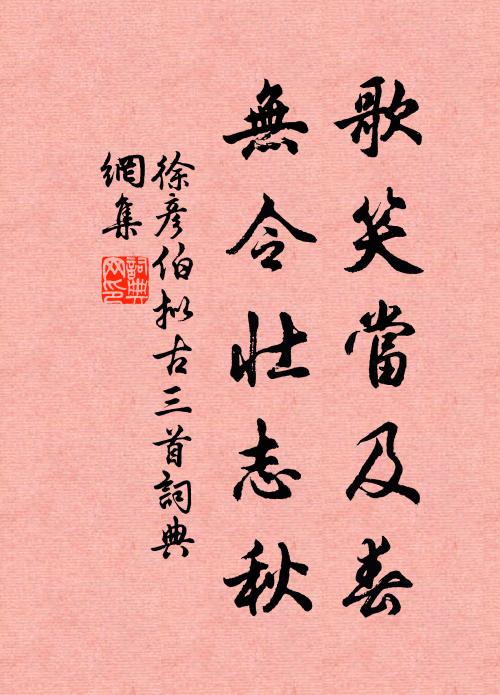 歌笑當及春
無令壯志秋
徐彥伯擬古三首詞典
網集
詞典
网印